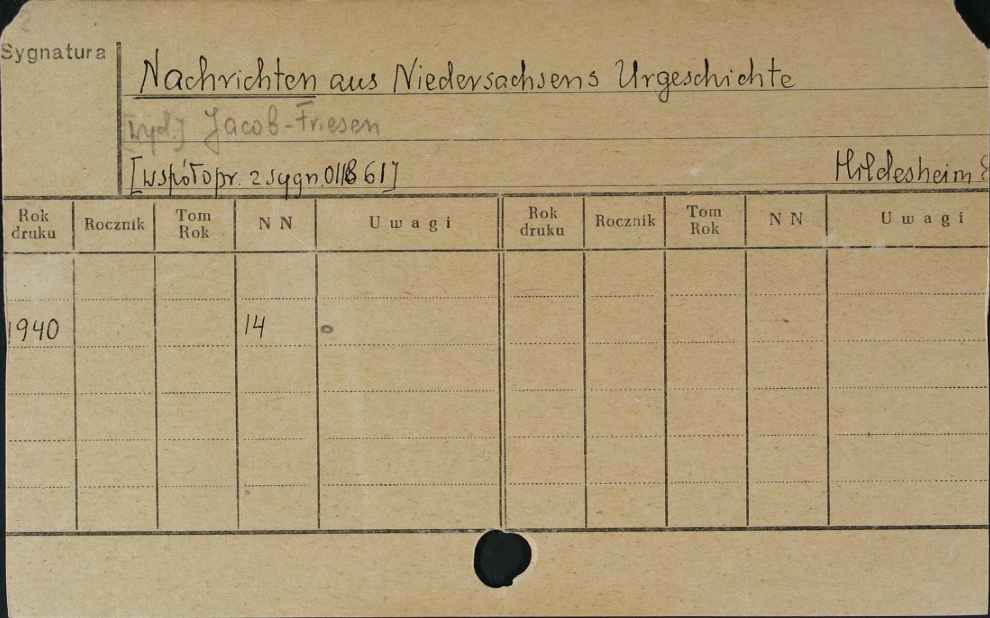 Sygnatura
Nachrichten aus Niedersachsens Urgeschichte
[wyd.] Jacob-Friesen
[współopr. z sygn. 861] Hildesheim
Rok druku Rocznik Tom Rok N N Uwagi Rok druku Rocznik Tom Rok N N Uwagi
1940 14